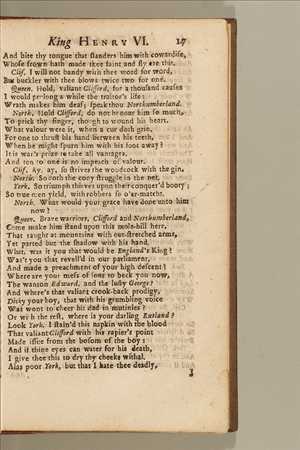 King HENRY VI. 17
And bite thy tongue that slanders him with cowardise,
Whose frown hath made thee faint and fly ere this.
Clif. I will not bandy with thee word for word,
But buckler with thee blows twice two for one.
Queen. Hold, valiant Clifford, for a thousand causes
I would prolong a while the traitor's life:
Wrath makes him deaf; speak thou Northumberland.
North. Hold Clifford, do not honour him so much,
To prick thy finger, though to wound his heart.
What valour were it, when a cur doth grin,
For one to thrust his hand between his teeth,
When he might spurn him with his foot away?
It is war's prize to take all vantages,
And ten to one is no impeach of valour.
Clif. Ay, ay, so strives the woodcock with the gin.
North. So doth the cony struggle in the net,
York. So triumph thieves upon their conquer'd booty;
So true men yield, with robbers so o'er-matcht.
North. What would your grace have done unto him
now?
Queen. Brave warriors, Clifford and Northumberland,
Come make him stand upon this mole-hill here,
That raught at mountains with out-stretched arms,
Yet parted but the shadow with his hand.
What, was it you that would be England's King?
Was't you that revell'd in our parliament,
And made a preachment of your high descent?
Where are your mess of sons to beck you now,
The wanton Edward, and the lusty George?
And where's that valiant crook-back prodigy,
Dicky your boy, that with his grumbling voice
Was wont to cheer his dad in mutinies?
Or with the rest, where is your darling Rutland?
Look York, I stain'd this napkin with the blood
That valiant Clifford with his rapier's point
Made issue from the bosom of the boy:
And if thine eyes can water for his death,
I give thee this to dry thy cheeks withal.
Alas poor York, but that I hate thee deadly,
I